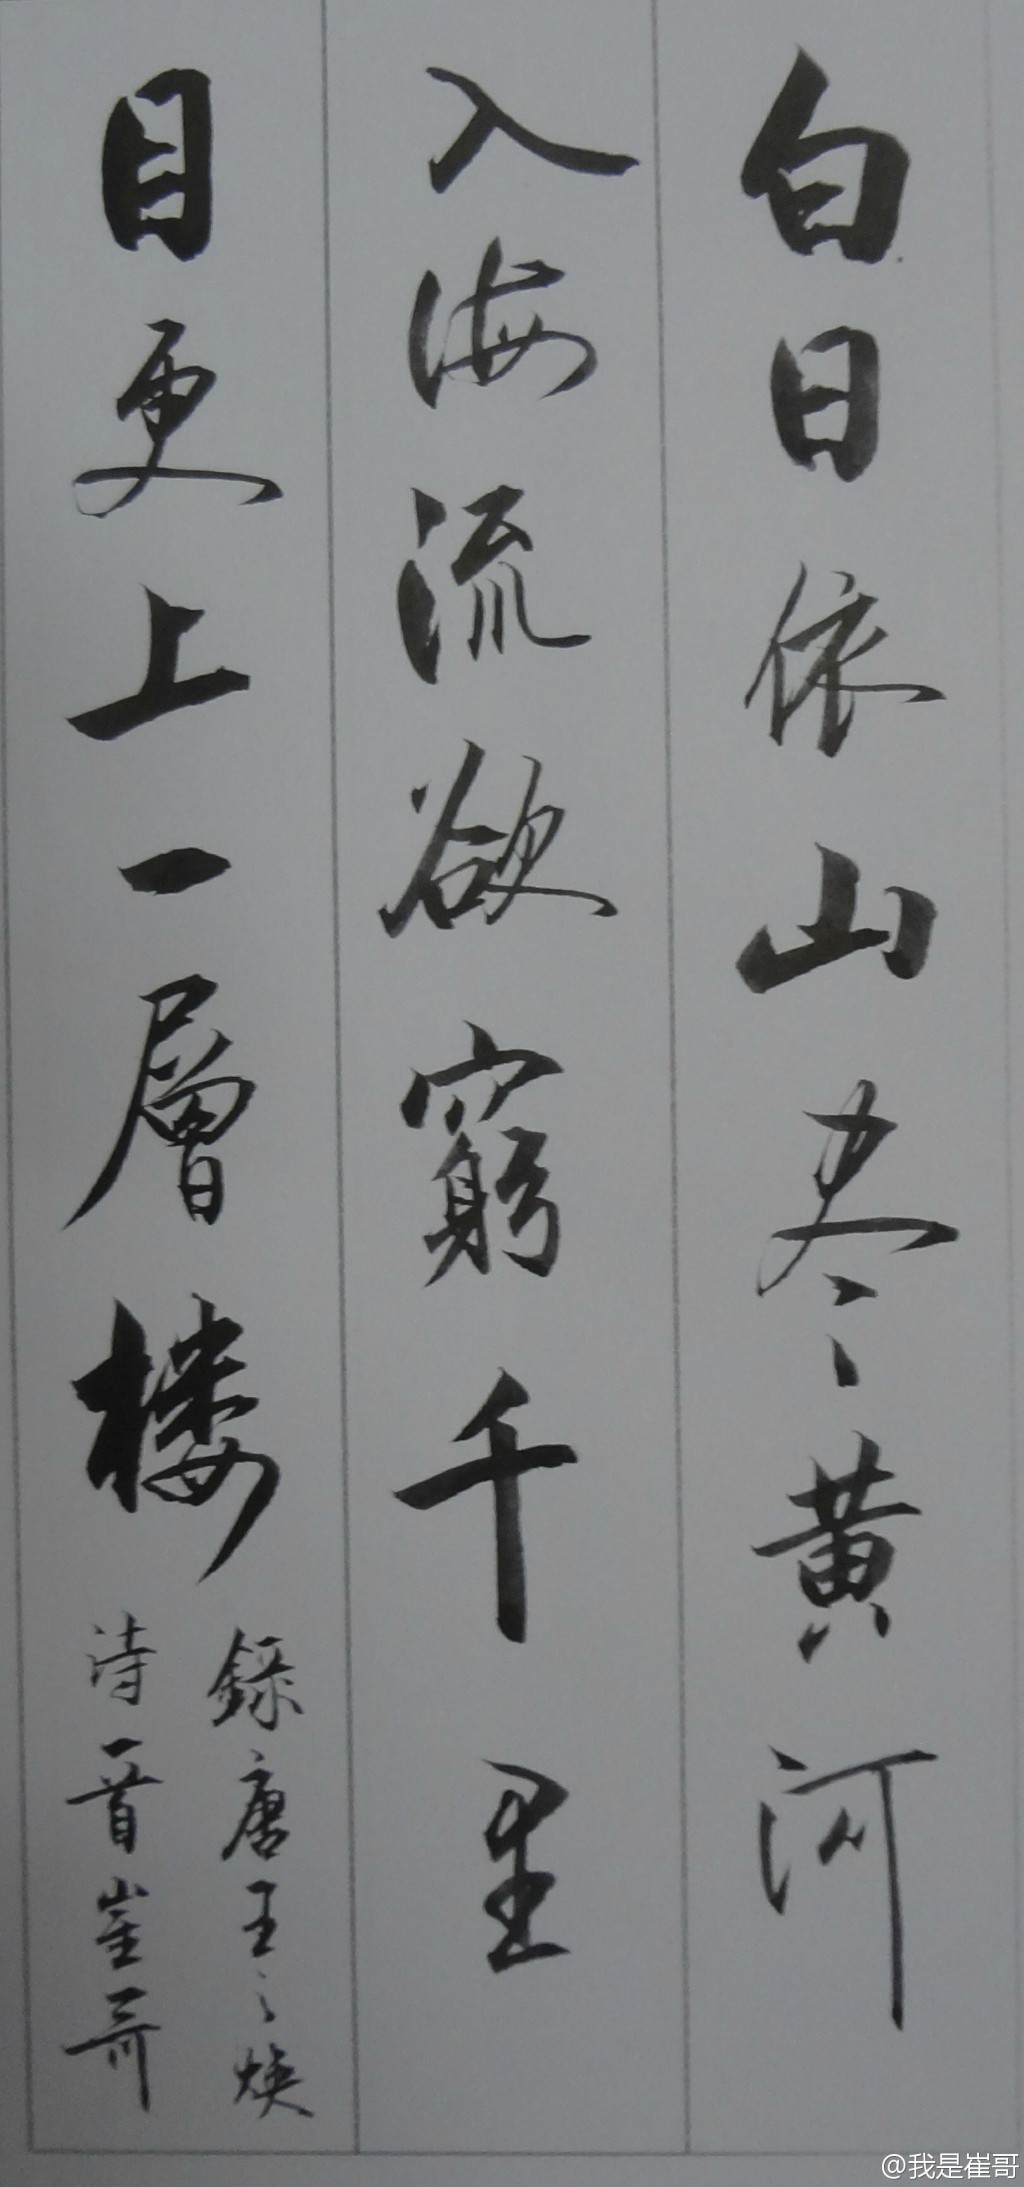 白日依山尽黄河
入海流欲窮千里
目更上一層楼
録唐王之焕
诗一首崔哥
@我是崔哥